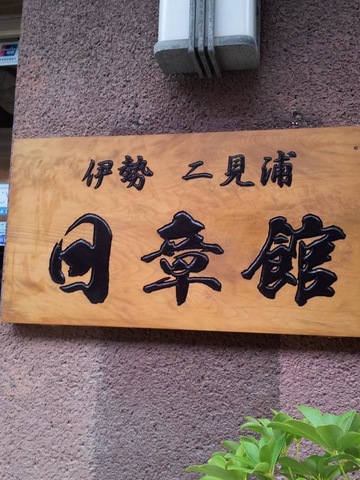 伊勢 二見浦
日章館